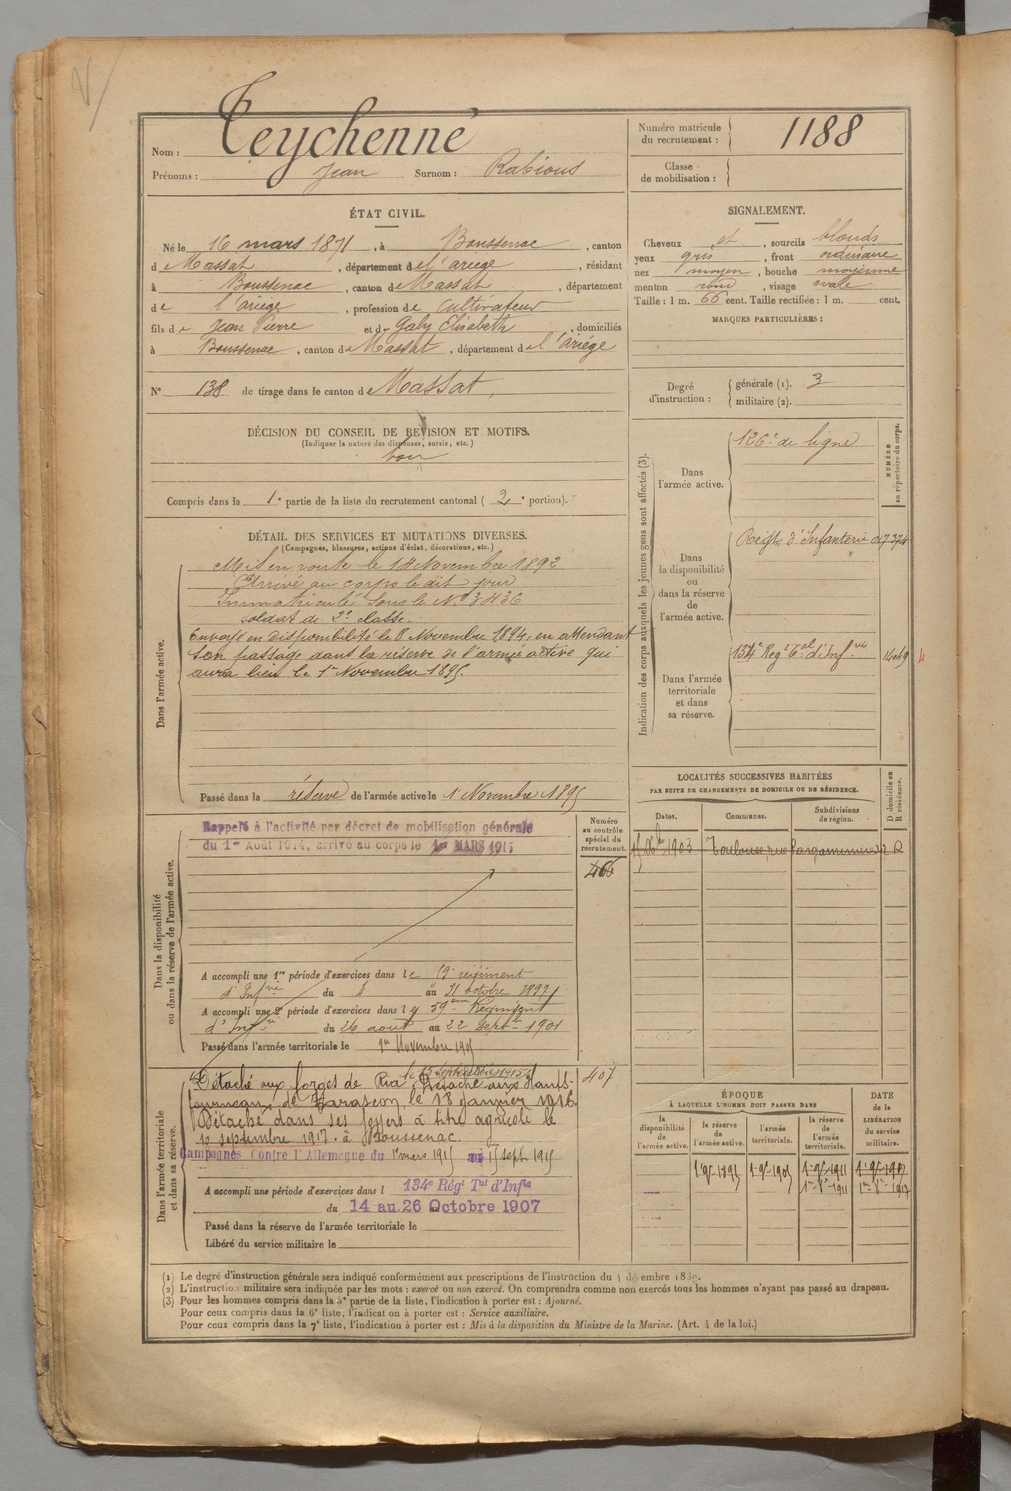 Nom : Teychenné
Prénoms : Jean Surnom : Rabious
Numéro matricule du recrutement : 1188
Classe de mobilisation :
ÉTAT CIVIL.
Né le 16 mars 1871, à Boussenac, canton
d e Massat, département de l'ariège, résidant
à Boussenac, canton de Massat, département
de l'ariège, profession de cultivateur
fils de Jean Pierre et de Galy Elisabeth, domiciliés
à Boussenac, canton de Massat, département de l'ariège
N° 138 de tirage dans le canton de Massat,
DÉCISION DU CONSEIL DE REVISION ET MOTIFS.
(Indiquer la nature des dispenses, sursis, etc.)
bon
Compris dans la 1e partie de la liste du recrutement cantonal ( 2e portion).
SIGNALEMENT.
Cheveux et, sourcils blonds
yeux gris, front ordinaire
nez moyen, bouche moyenne
menton rond, visage ovale
Taille : 1 m. 66 cent. Taille rectifiée : 1 m. cent.
MARQUES PARTICULIÈRES :
Degré d'instruction :
générale (1). 3
militaire (2).
DÉTAIL DES SERVICES ET MUTATIONS DIVERSES.
(Campagnes, blessures, actions d'éclat, décorations, etc.)
Dans l'armée active.
Mis en route le 14 Novembre 1892
Arrivé au corps le dit jour
Immatriculé sous le N° 3436
soldat de 2e classe.
Envoyé en disponibilité le 8 Novembre 1894, en attendant
son passage dans la réserve de l'armée active qui
aura lieu le 1er Novembre 1895.
Passé dans la réserve de l'armée active le 1 Novembre 1895
Indication des corps auxquels les jeunes gens sont affectés (3).
NUMÉRO au répertoire du corps.
Dans l'armée active.
126e de ligne
Dans la disponibilité ou dans la réserve de l'armée active.
Regt d'Infanterie
Dans l'armée territoriale et dans sa réserve.
134e Regt Tal d'Infrie
LOCALITÉS SUCCESSIVES HABITÉES
PAR SUITE DE CHANGEMENTS DE DOMICILE OU DE RÉSIDENCE.
Dates.
Communes.
Subdivisions de région.
D domicile ou R résidence.
1903 Toulouse, rue R
Dans la disponibilité ou dans la réserve de l'armée active.
Numéro au contrôle spécial du recrutement.
Rappelé à l'activité par décret de mobilisation générale
du 1er Août 1914, arrivé au corps le 1er MARS 1915
A accompli une 1re période d'exercices dans le régiment
d'Infrie du 4 au 31 octobre 1897
A accompli une 2e période d'exercices dans le 59eme Régiment
d'Infrie du 26 aout au 22 septre 1901
Passé dans l'armée territoriale le 1er Novembre 1905
Dans l'armée territoriale et dans sa réserve.
407
le 15 septembre 1915
Détaché aux forges de Ria. Détaché aux Hauts-
fourneaux de Tarascon le 18 janvier 1916.
Détaché dans ses foyers à titre agricole le
10 septembre 1917. à Boussenac.
Campagnes Contre l'Allemagne du 1er mars 1915 au 15 sept 1915
A accompli une période d'exercices dans l 134e Régt Tal d'Infie
du 14 au 26 Octobre 1907
Passé dans la réserve de l'armée territoriale le
Libéré du service militaire le
ÉPOQUE
À LAQUELLE L'HOMME DOIT PASSER DANS
la disponibilité de l'armée active.
la réserve de l'armée active.
l'armée territoriale.
la réserve de l'armée territoriale.
DATE de la LIBÉRATION du service militaire.
1 9bre 1895
1 9bre 1905
1 9bre 1911
(1) Le degré d'instruction générale sera indiqué conformément aux prescriptions de l'instruction du
(2) L'instruction militaire sera indiquée par les mots : exercé ou non exercé. On comprendra comme non exercés tous les hommes n'ayant pas passé au drapeau.
(3) Pour les hommes compris dans la 5e partie de la liste, l'indication à porter est : Ajourné.
Pour ceux compris dans la 6e liste, l'indication à porter est : Service auxiliaire.
Pour ceux compris dans la 7e liste, l'indication à porter est : Mis à la disposition du Ministre de la Marine. (Art. 4 de la loi.)